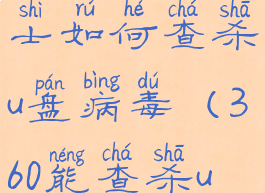 shì rú hé chá shā
士如何查杀
pán bìng dú
u盘病毒（3
néng chá shā
60能查杀u